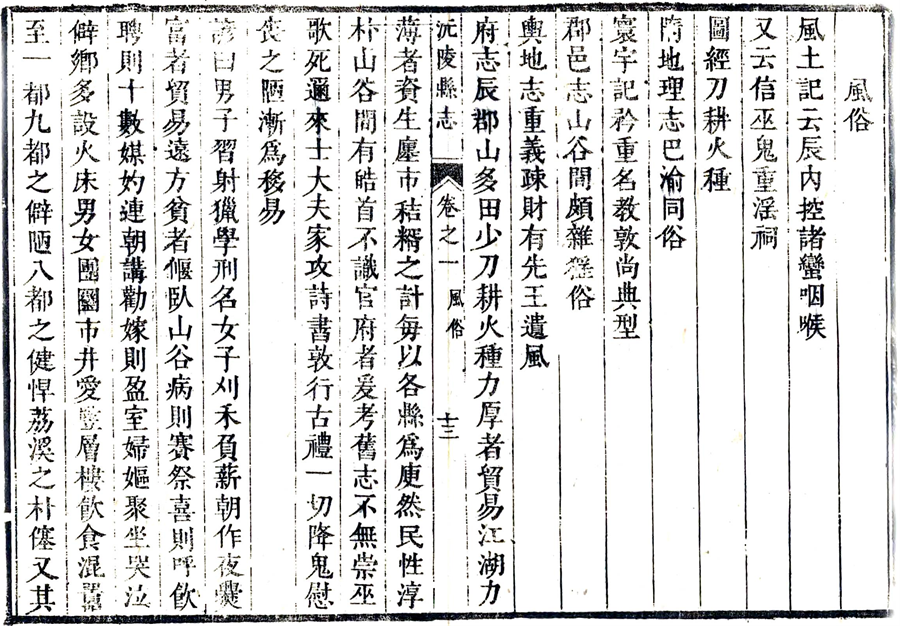 風俗
風土記云辰內控諸蠻咽喉
又云信巫鬼重淫祠
圖經刀耕火種
隋地理志巴渝同俗
寰宇記矜重名教敦尚典型
郡邑志山谷間頗雜猺俗
輿地志重義疎財有先王遺風
府志辰郡山多田少刀耕火種力厚者貿易江湖力
沅陵縣志 卷之一 風俗 十三
薄者資生廛市秸糈之計每以各縣爲庾然民性淳
朴山谷間有皓首不識官府者爰考舊志不無崇巫
歌死邇來士大夫家攻詩書敦行古禮一切降鬼慰
喪之陋漸爲移易
諺曰男子習射獵學刑名女子刈禾負薪朝作夜爨
富者貿易遠方貧者偃臥山谷病則賽祭喜則呼飲
聘則十數媒妁連朝講勸嫁則盈室婦嫗聚坐哭泣
僻鄉多設火床男女團圞市井愛豎層樓飲食混囂
至一都九都之僻陋八都之健悍荔溪之朴僿又其